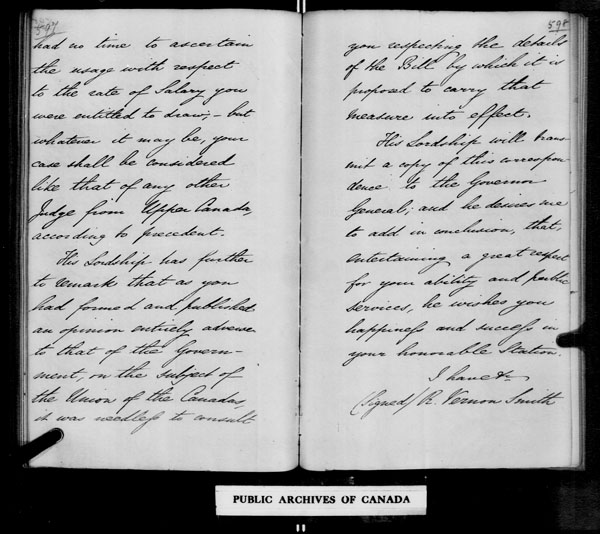 597
had no time to ascertain
the usage with respect
to the rate of Salary you
were entitled to draw, - but
whatever it may be, your
case shall be considered
like that of any other
Judge from Upper Canada,
according to precedent.
His Lordship has further
to remark that as you
had formed and published
an opinion entirely adverse
to that of the Govern-
ment, on the subject of
the Union of the Canadas,
it was needless to consult
598
you respecting the details
of the Bill by which it is
proposed to carry that
measure into effect.
His Lordship will trans-
mit a copy of this correspon-
dence to the Governor
General; and he desires me
to add in conclusion, that,
entertaining a great respect
for your ability and public
services, he wishes you
happiness and success in
your honorable Station.
I have &c
(signed) R. Vernon Smith
PUBLIC ARCHIVES OF CANADA